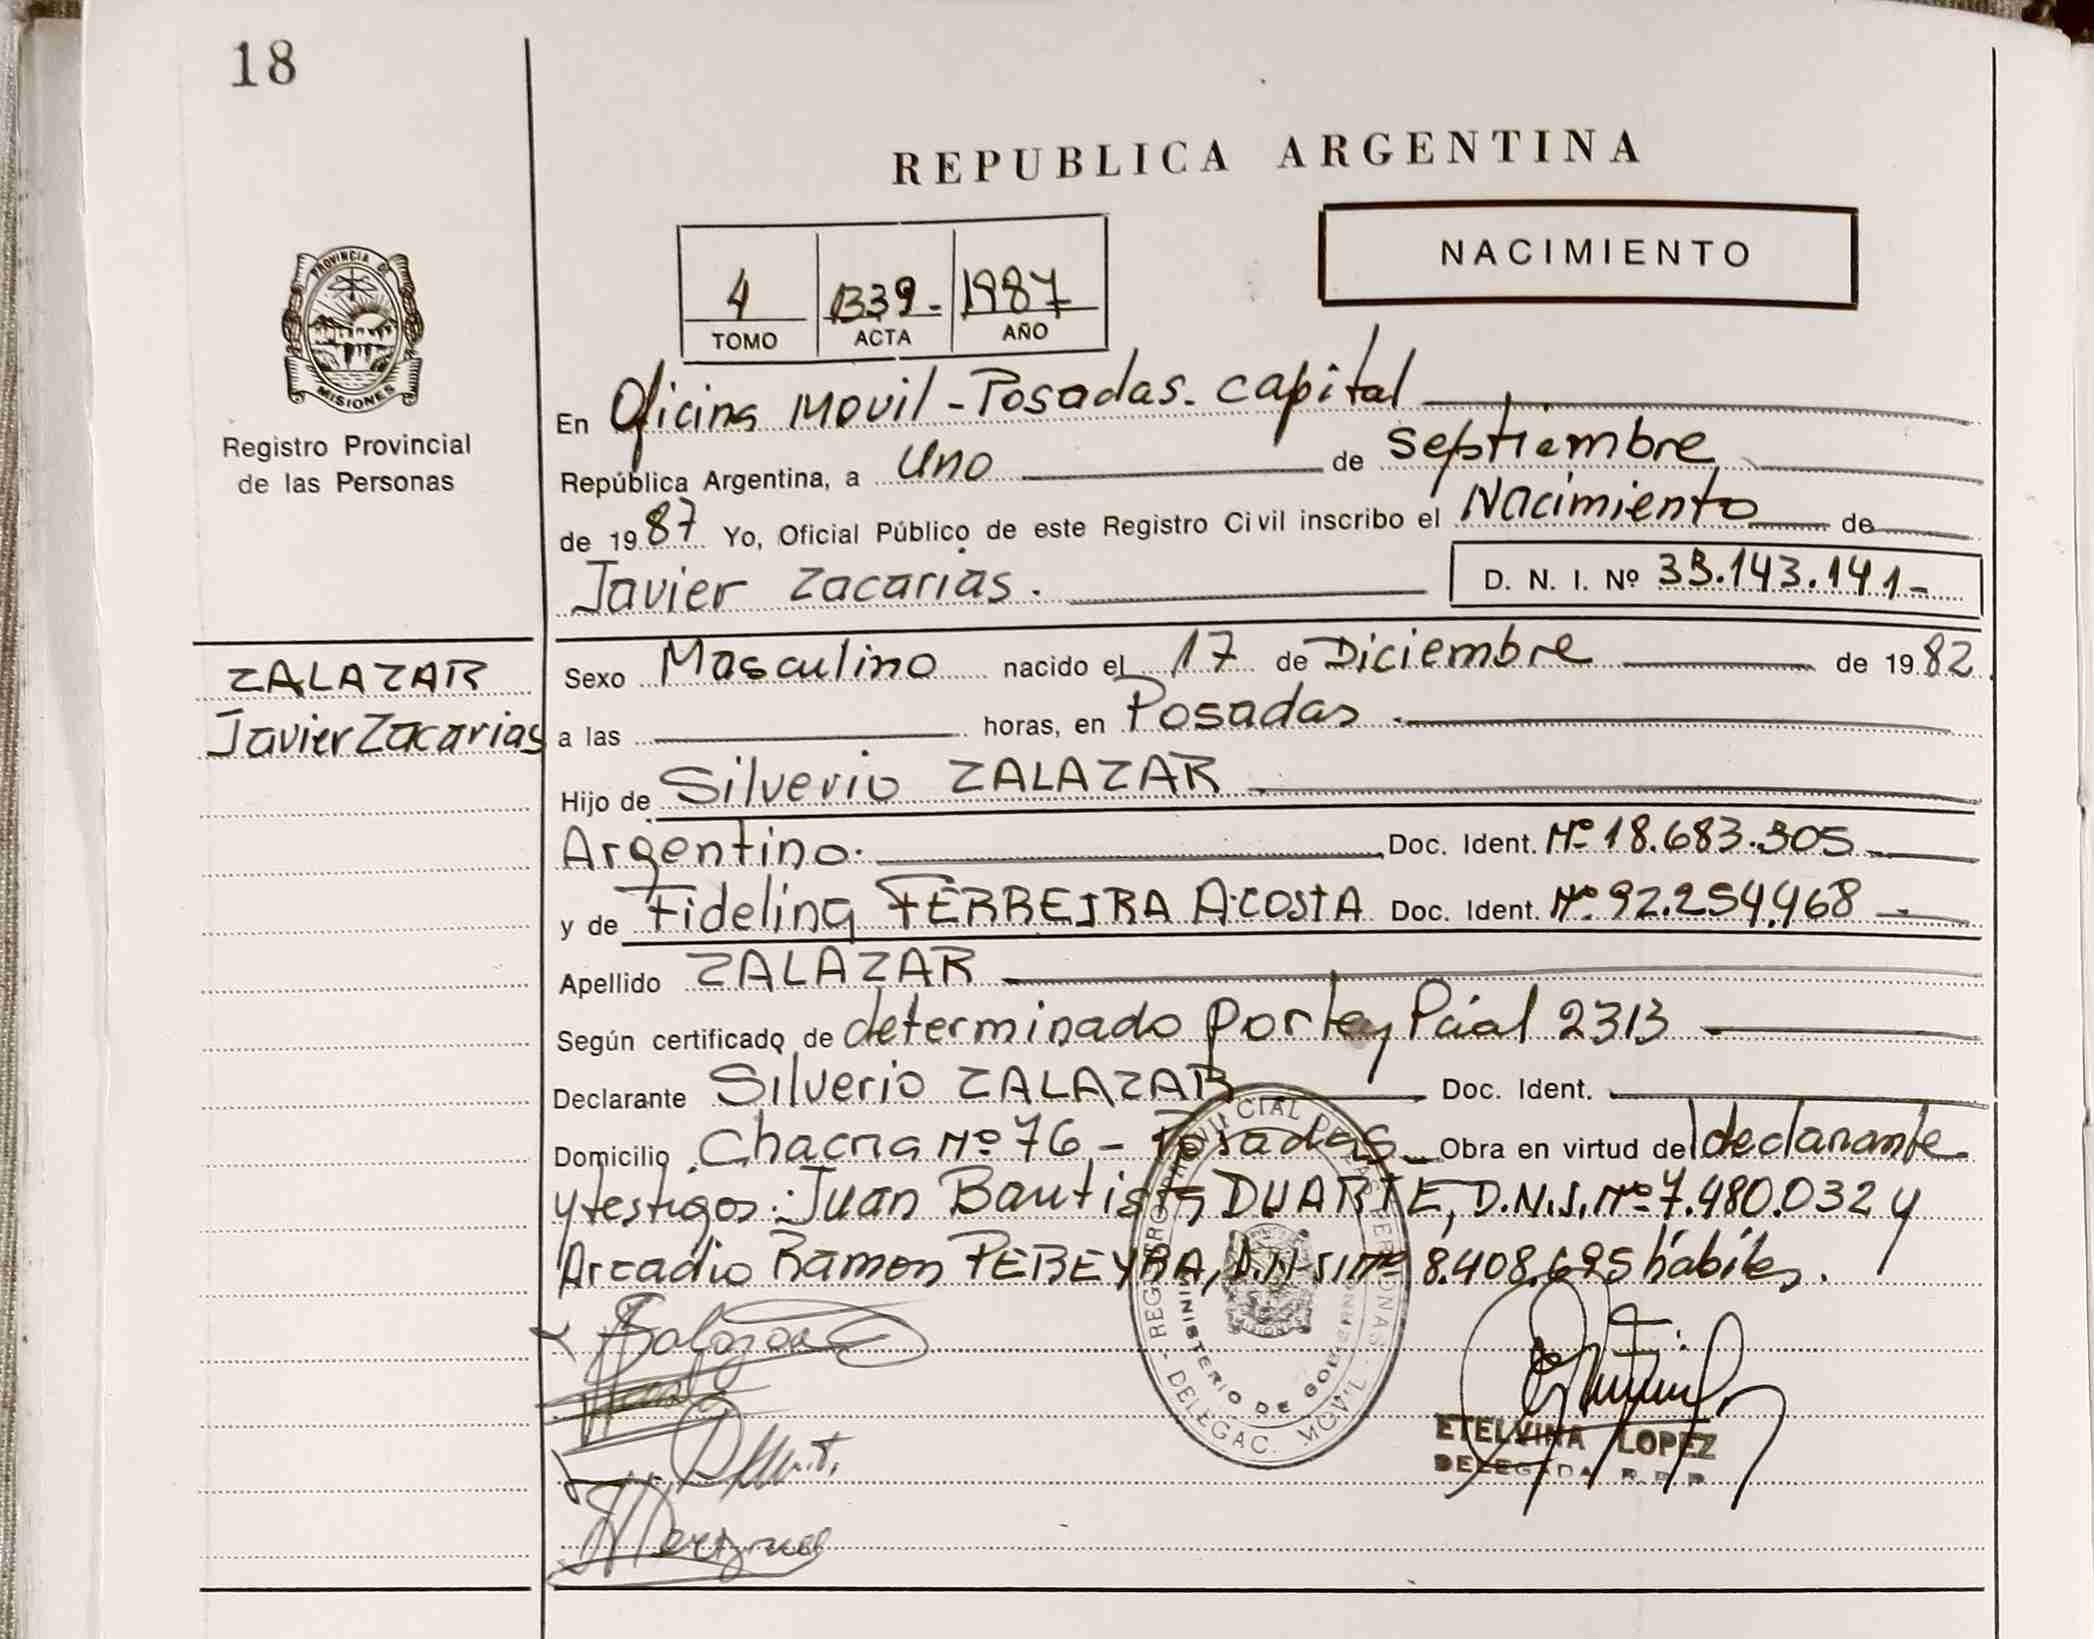 18
REPUBLICA ARGENTINA
NACIMIENTO
4 1339- 1987
TOMO ACTA AÑO
PROVINCIA DE
MISIONES
Registro Provincial
de las Personas
En Oficina Movil - Posadas. Capital
República Argentina, a Uno de Septiembre
de 1987 Yo, Oficial Público de este Registro Civil inscribo el Nacimiento de
Javier Zacarias.
D. N. I. Nº 33.143.141-
ZALAZAR
Javier Zacarias
Sexo Masculino nacido el 17 de Diciembre de 1982
a las horas, en Posadas.
Hijo de Silverio ZALAZAR
Argentino. Doc. Ident. Nº 18.683.305
y de Fidelina FERREIRA ACOSTA Doc. Ident. Nº 92.254.468
Apellido ZALAZAR
Según certificado de determinado por ley Pcial 2313
Declarante Silverio ZALAZAR Doc. Ident.
Domicilio Chacra Nº 76 - Posadas Obra en virtud del declarante
y testigos: Juan Bautista DUARTE, D.N.I. Nº 7.480.032 y
Arcadio Ramon PEREYRA, D.N.I. Nº 8.408.695 hábiles.
REGISTRO PROVINCIAL DE LAS PERSONAS
MINISTERIO DE GOBIERNO
DELEGAC. MOVIL
ETELVINA LOPEZ
DELEGADA R. P. P.